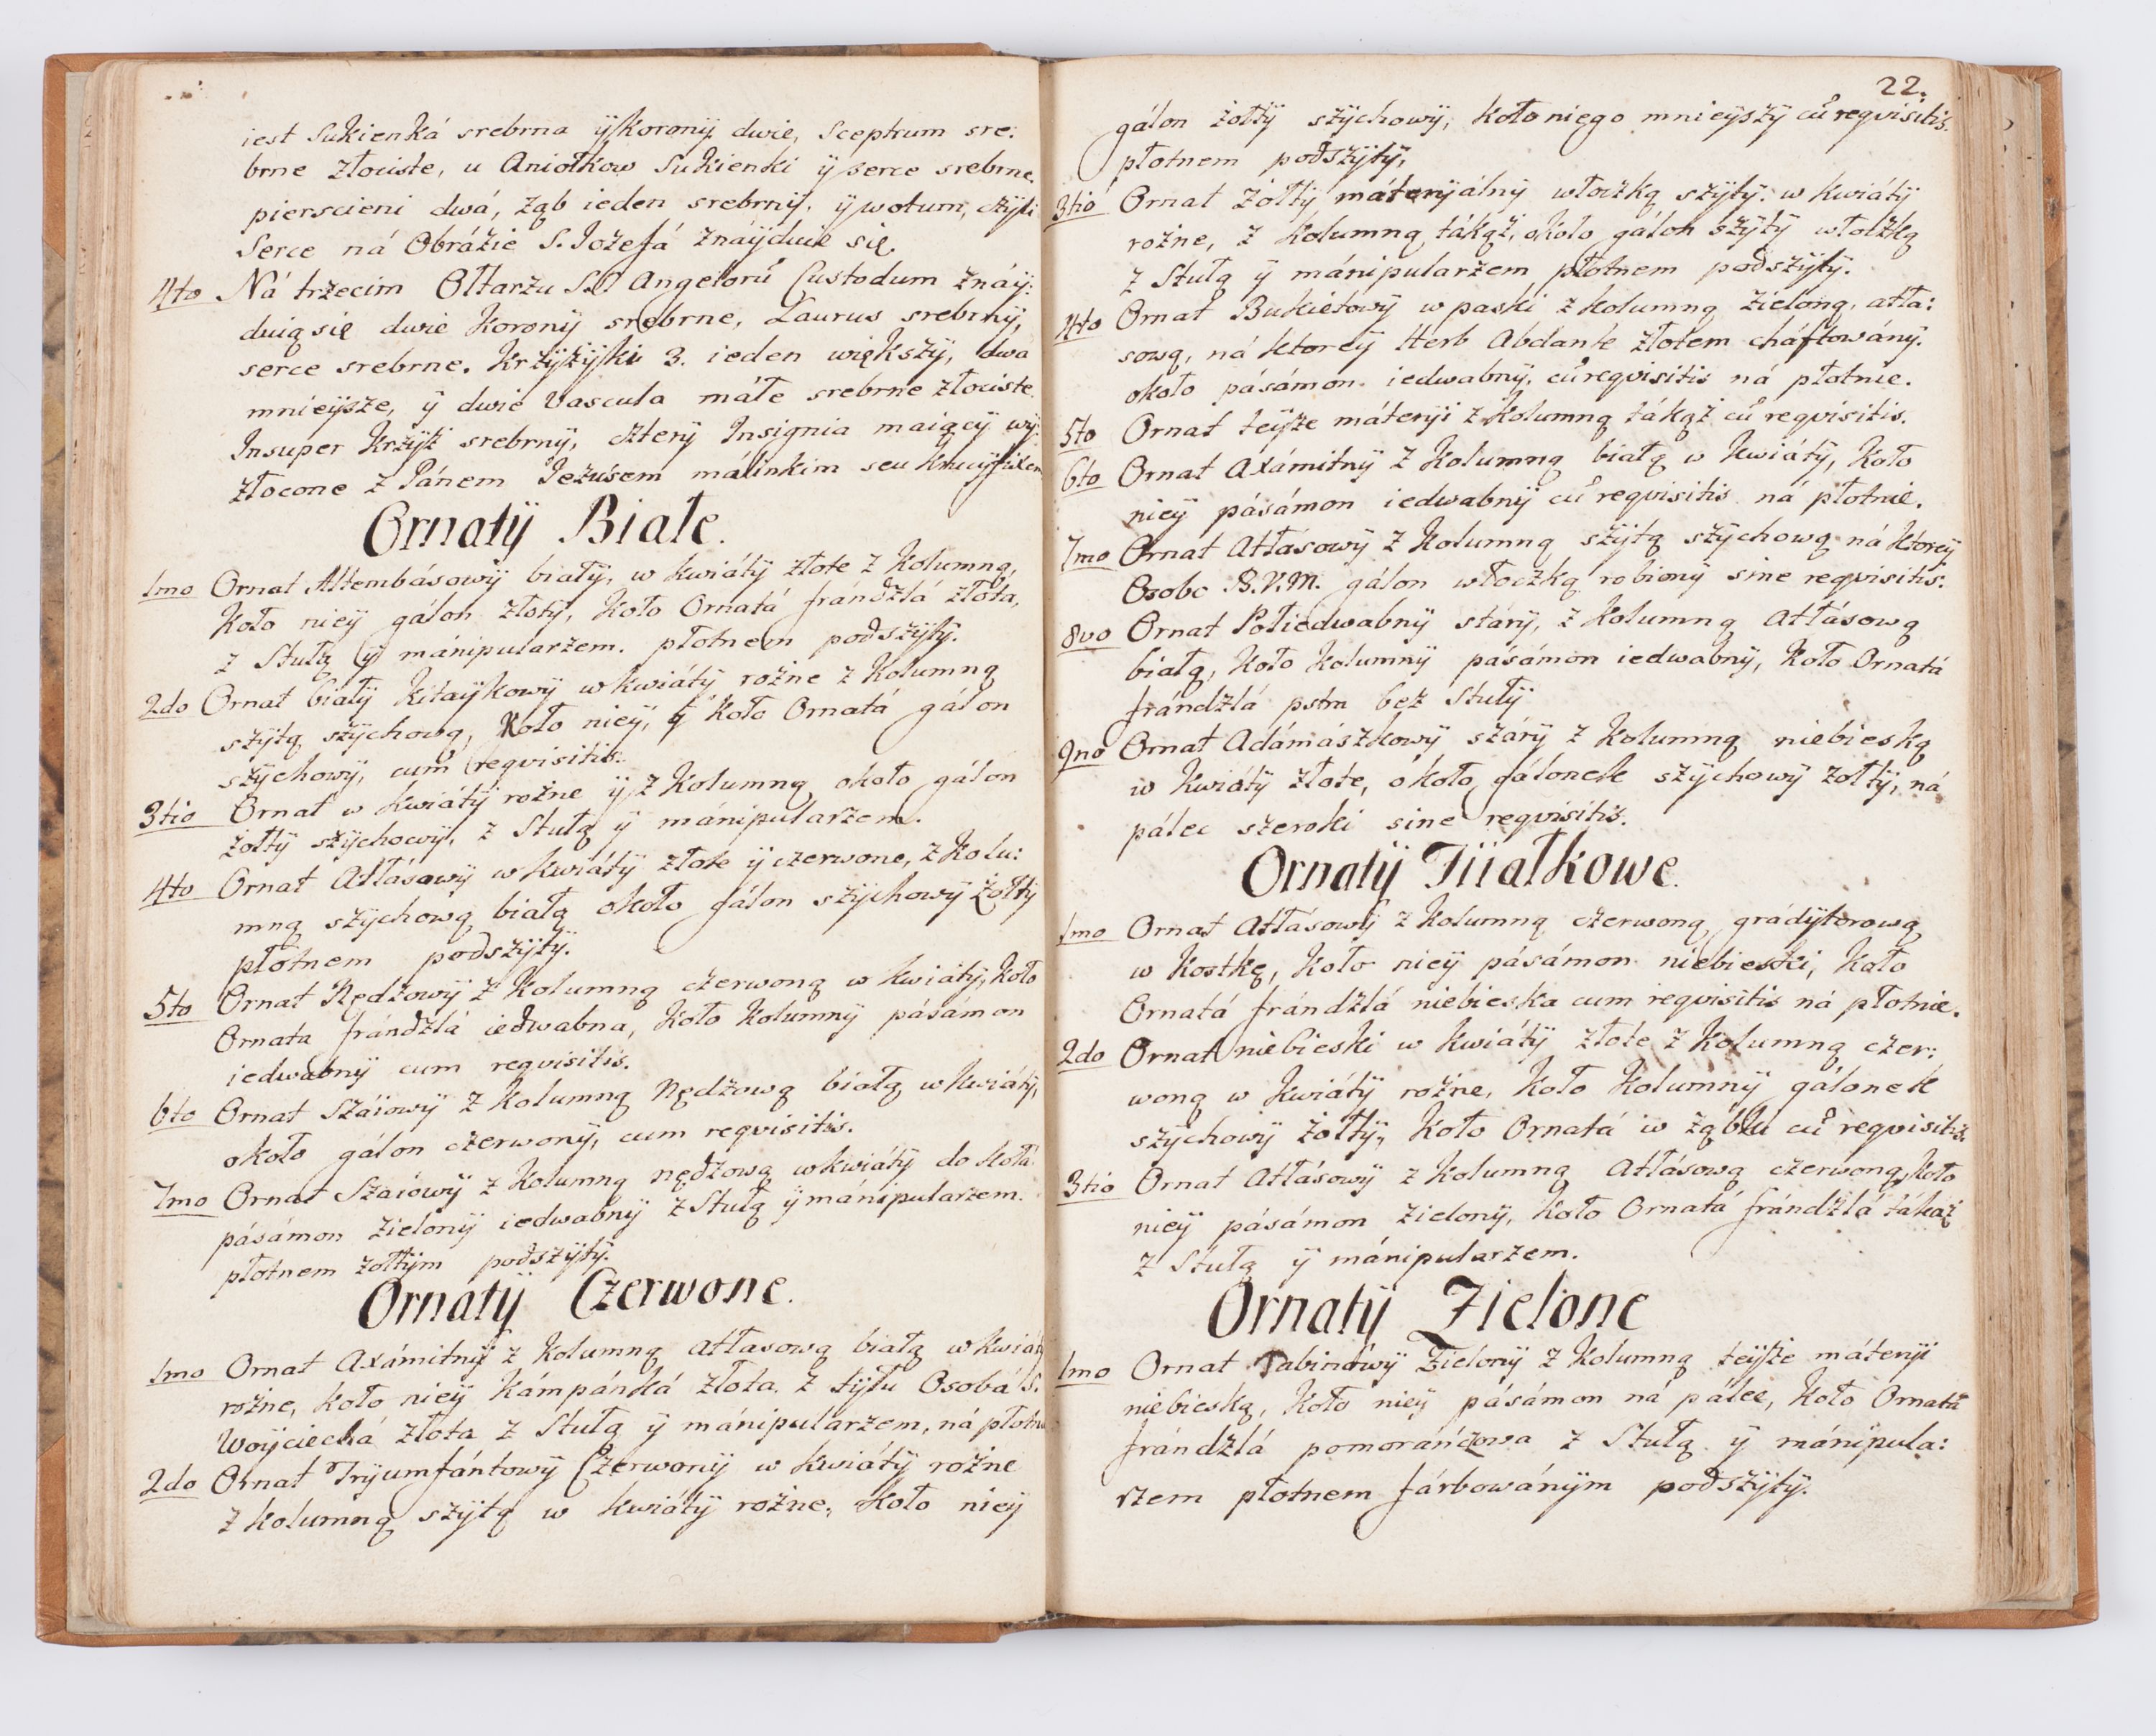 iest Sukienká srebrna ÿ Koronÿ dwie, Sceptrum sre:
brne złociste, u Aniołkow Sukienki ÿ serce srebrne.
pierscieni dwá, ząb ieden srebrnÿ. ÿ wotum, czÿli
Serce ná Obrázie S. Iozefá znáÿduie się.
4to Ná trzecim Ołtarzu S.S. Angelorũ Custodum znáÿ:
duią się dwie Koronÿ srebrne, Laurus srebrnÿ,
serce srebrne. Krzÿżÿki 3. ieden większÿ, dwa
mnieÿsze, ÿ dwie Vascula máłe srebrne złociste.
Insuper Krzÿż srebrnÿ, czterÿ Insignia maiącÿ wÿ:
złocone z Pánem Jezusem málinkim seu Krucÿfixem
Ornatÿ Białe.
1mo Ornat Altembásowÿ białÿ, w kwiátÿ złote z Kolumną,
Koło nieÿ gálon złotÿ, Koło Ornatá frándzlá złota,
z Stułą ÿ mánipularzem. płotnem podszÿtÿ.
2do Ornat białÿ kitaÿkowÿ w kwiátÿ rożne z Kolumną
szÿtą szÿchową, Koło nieÿ, ÿ Koło Ornatá gálon
szÿchowÿ, cum reqvisitis.
3tio Ornat w kwiátÿ rożne ÿ z Kolumną około gálon
żołtÿ szÿchowÿ, z Stułą ÿ mánipularzem.
4to Ornat Atłásowÿ w kwiátÿ złote ÿ czerwone, z Kolu:
mną szÿchową białą około gálon szÿchowÿ żołtÿ
płotnem podszÿtÿ.
5to Ornat Nędzowÿ z Kolumną czerwoną w kwiátÿ, Koło
Ornata frándzlá iedwabna, Koło Kolumnÿ pásámon
iedwabnÿ cum reqvisitis.
6to Ornat Száiowÿ z Kolumną Nędzową białą w kwiátÿ,
około gálon czerwonÿ, cum reqvisitis.
7mo Ornat Szaiowÿ z Kolumną nędzową w kwiátÿ do kołá
pásámon zielonÿ iedwabnÿ z Stułą ÿ mánipularzem.
płotnem żołtÿm podszÿtÿ.
Ornatÿ Czerwone.
1mo Ornat Axámitnÿ z Kolumną atłasową białą w kwiátÿ
rożne, koło nieÿ Kámpánká złota. z tÿłu Osobá S.
Woÿciechá złota z Stułą ÿ mánipularzem, ná płotnie
2do Ornat Trÿumfántowÿ Czerwonÿ w kwiátÿ rożne
z Kolumną szÿtą w kwiátÿ rożne, Koło nieÿ
22.
gálon żołtÿ szÿchowÿ, Koło niego mnieÿszÿ cũ reqvisitis.
płotnem podszÿtÿ,
3tio Ornat żołtÿ máterÿálnÿ włoczką szÿtÿ. w kwiátÿ
rożne, z Kolumną tákąż, około gálon szÿtÿ włoczką
z Stułą ÿ mánipularzem płotnem podszÿtÿ.
4to Ornat Bukietowÿ w paski z kolumną zieloną, atła:
sową, ná ktoreÿ Herb Abdank złotem cháftowánÿ.
około pásámon iedwabnÿ, cũ reqvisitis ná płotnie.
5to Ornat teÿże máterÿi z Kolumną tákąż cũ reqvisitis.
6to Ornat Axámitnÿ z Kolumną białą w kwiátÿ, Koło
nieÿ pásámon iedwabnÿ cũ reqvisitis ná płotnie.
7mo Ornat Atłasowÿ z Kolumną szÿtą szÿchową ná ktoreÿ
Osobo B.V.M. gálon włoczką robionÿ sine reqvisitis.
8vo Ornat Połiedwabnÿ stárÿ, z Kolumną Atłásową
białą, Koło Kolumnÿ pásámon iedwabnÿ, Koło Ornatá
frándzlá pstra bez Stułÿ
9no Ornat Adámászkowÿ szárÿ z Kolumną niebieską
w kwiátÿ złote, około gálonek szÿchowÿ zołtÿ, ná
pálec szeroki sine reqvisitis.
Ornatÿ Fiiałkowe.
1mo Ornat Atłásowÿ z Kolumną czerwoną grádÿtorową
w Kostkę, Koło nieÿ pásámon niebieski, Koło
Ornatá frándzlá niebieska cum reqvisitis ná płotnie.
2do Ornat niebieski w kwiátÿ złote z Kolumną czer:
woną w kwiátÿ rożne, Koło Kolumnÿ gálonek
szÿchowÿ żołtÿ, Koło Ornatá w ząbku cũ reqvisitis.
3tio Ornat Atłásowÿ z Kolumną Atłásową czerwoną, Koło
nieÿ pásámon zielonÿ, Koło Ornatá frándzlá tákaż
z Stułą ÿ mánipularzem.
Ornatÿ Zielone
1mo Ornat Tabinowÿ Zielonÿ z Kolumną teÿże máterÿi
niebieską, Koło nieÿ pásámon ná pálec, Koło Ornatá
frándzlá pomoránczowa z Stułą ÿ mánipula:
rzem płotnem fárbowánÿm podszÿtÿ.